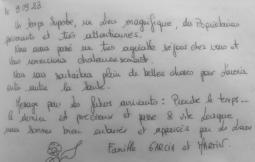 le 9.09.23
Un temps superbe, un lieu magnifique, des propriétaires
prévenants et très attentionnés.
Nous avons passé un très agréable séjour chez vous et
vous remercions chaleureusement
Nous vous souhaitons plein de belles choses pour
la suite.
Message pour les futurs arrivants : Prendre le temps...
le dernier est précieux et passe si vite lorsque
nous sommes bien entourés et apaisés par le lieu
Famille GARCIA et MARTIN